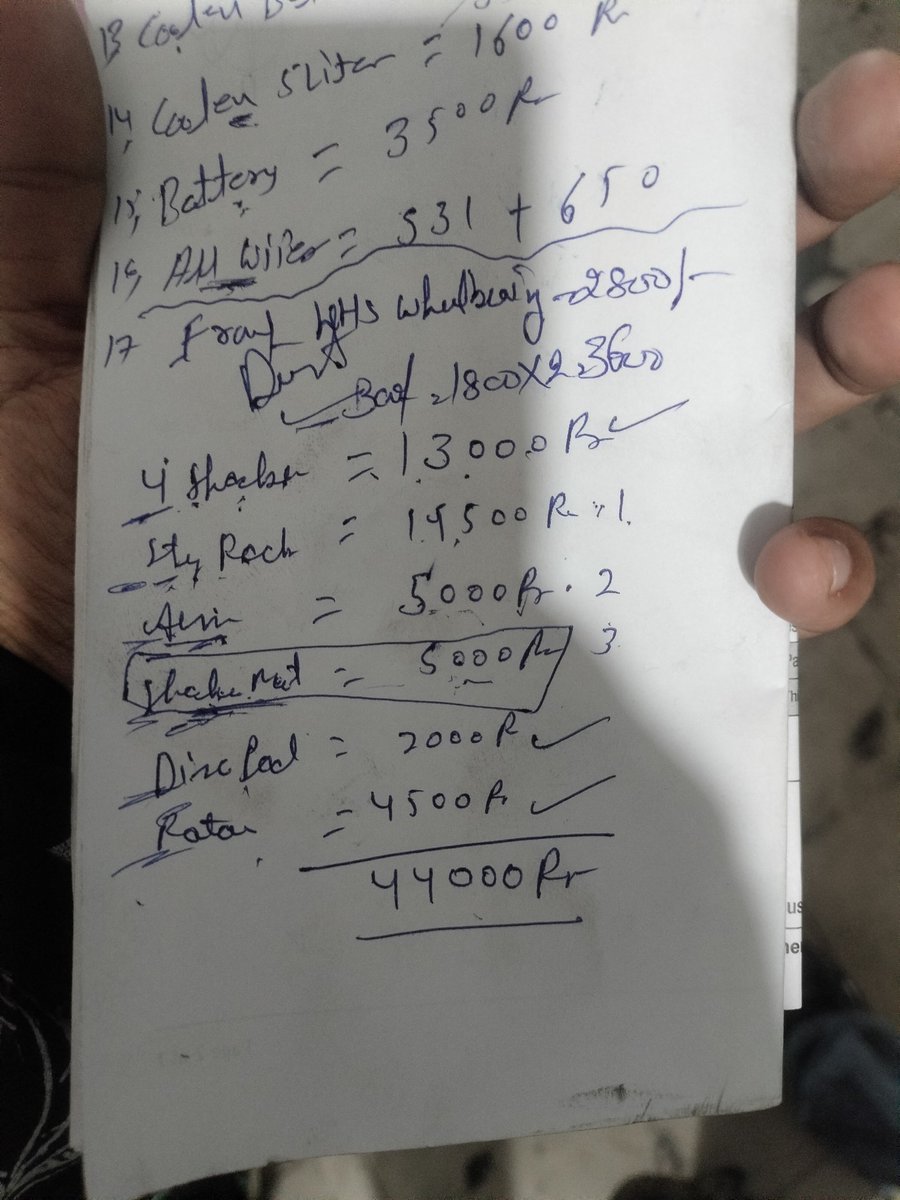 13 Coolen
14, Coolen 5 Liter = 1600 Rr
15, Battery = 3500 Rr
16, All Wiper = 531 + 650
17 Front LHS whelbearing -2800/-
Dust
Boot -1800X2-3600
4 Shocker = 13000 Rr
Sty Rack = 14,500 Rr 1.
Arm = 5000 Rr . 2
Shocker Mount = 5000 Rr 3.
Disc Pad = 2000 Rr
Rotar = 4500 Rr
44000 Rr